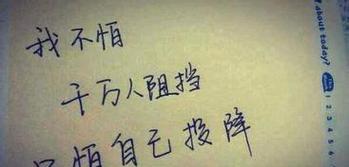 我不怕
千万人阻挡
只怕自己投降
about today?
1 2 3 4 5 6